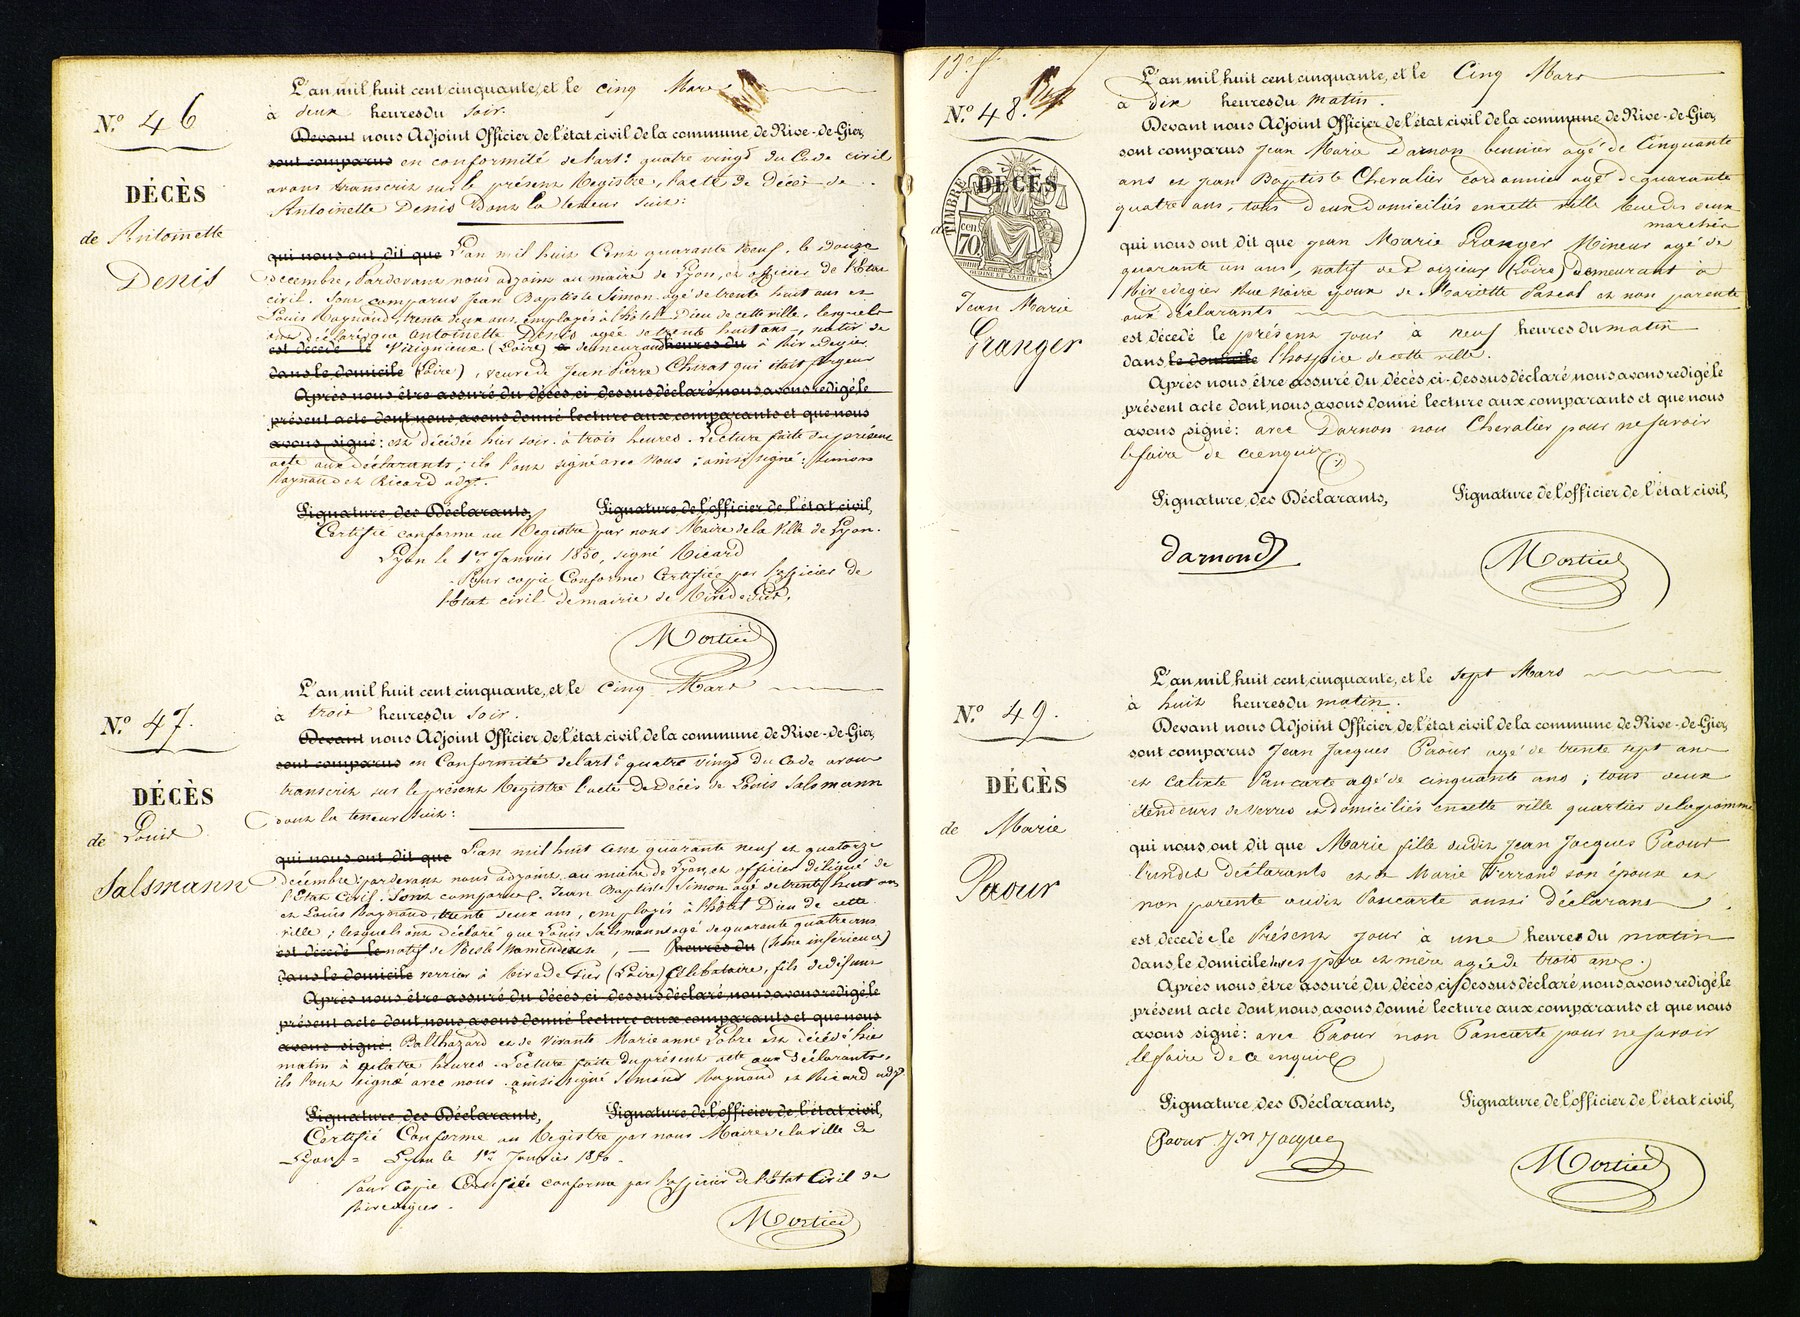 N.º 46
DÉCÈS
de Antoinette
Denis
L'an mil huit cent cinquante, et le cinq Mars
à deux heures du soir.
Devant nous Adjoint Officier de l'état civil de la commune de Rive-de-Gier,
sont comparus en conformité de l'art.e quatre vingt du Code civil
avons transcrit sur le présent Registre, l'acte de Décès de
Antoinette Denis dont la teneur suit:
qui nous ont dit que L'an mil huit Cent quarante neuf, le douze
décembre, Pardevant nous adjoint au maire de Lyon, et officier de l'État
civil. Sont comparus Jean Baptiste Simon agé de trente huit ans et
Louis Raynaud, trente deux ans, employés à l'hôtel Dieu de cette ville, lesquels
ont déclaré que Antoinette Denis agée de trente huit ans, native de
est décédé le (Loire) à demeurant heures du à Rive de gier
dans le domicile (Loire), veuve de Jean Pierre Cherat qui était forgeur
Après nous être assuré du décès, ci-dessus déclaré, nous avons rédigé le
présent acte dont nous avons donné lecture aux comparants et que nous
avons signé: est décédée hier soir à trois heures. Lecture faite du présent
acte aux déclarants; ils l'ont signé avec nous; ainsi signé: Simon
Raynaud et Ricard adjt.
Signature des Déclarants, Signature de l'officier de l'état civil,
Certifié conforme au Registre par nous Maire de la Ville de Lyon.
Lyon le 1er Janvier 1850, signé Ricard
Pour copie Conforme Certifiée par l'officier de
l'État civil de mairie de Rive de Gier.
Mortier
N.º 47.
DÉCÈS
de Louis
Salsmann
L'an mil huit cent cinquante, et le cinq Mars
à trois heures du soir.
Devant nous Adjoint Officier de l'état civil de la commune de Rive-de-Gier,
sont comparus en Conformité de l'art.e quatre vingt du Code avons
transcrit sur le présent Registre l'acte de Décès de Louis Salsmann
dont la teneur suit:
qui nous ont dit que L'an mil huit cent quarante neuf et quatorze
décembre: pardevant nous adjoint au maire de Lyon, et officier délégué de
l'État Civil. Sont comparus. Jean Baptiste Simon agé de trente huit ans
et Louis Raynaud, trente deux ans, employés à l'hôtel Dieu de cette
ville; lesquels ont déclaré que Louis Salsmann agé de quarante quatre ans
est décédé le natif de heures du (Seine inférieure)
dans le domicile verrier à Rive de Gier (Loire) Célibataire, fils de défunt
Après nous être assuré du décès, ci-dessus déclaré, nous avons rédigé le
présent acte dont nous avons donné lecture aux comparants et que nous
avons signé: Balthazard et de Vivante Marie anne Lobre est décédé hier
matin à quatre heures. Lecture faite du présent acte aux déclarants,
ils l'ont signé avec nous. ainsi signé Simond Raynaud et Ricard adjt.
Signature des Déclarants, Signature de l'officier de l'état civil,
Certifié Conforme au Registre par nous Maire de la ville de
Lyon = Lyon le 1er Janvier 1850.
Pour Copie Certifiée conforme par l'officier de l'État Civil de
Rivedegier.
Mortier
N.º 48.
DÉCÈS
TIMBRE
cen
70
Jean Marie
Granger
L'an mil huit cent cinquante, et le Cinq Mars
à dix heures du matin.
Devant nous Adjoint Officier de l'état civil de la commune de Rive-de-Gier,
sont comparus Jean Marie Darnon agé de Cinquante
ans et jean Baptiste Chevalier cordonnier agé de quarante
quatre ans, tous deux domiciliés en cette ville Rue des deux
marchés
qui nous ont dit que jean Marie Granger Mineur agé de
quarante un ans, natif de Doizieux (Loire) demeurant à
Rivedegier Rue noire époux de Mariette Pascal et non parente
aux déclarants
est décédé le présent jour à neuf heures du matin
dans le domicile l'hospice de cette ville.
Après nous être assuré du décès, ci-dessus déclaré, nous avons rédigé le
présent acte dont nous avons donné lecture aux comparants et que nous
avons signé: avec Darnon non Chevalier pour ne savoir
le faire de ce enquis
Signature des Déclarants, Signature de l'officier de l'état civil,
Darnond Mortier
N.º 49.
DÉCÈS
de Marie
Paour
L'an mil huit cent cinquante, et le sept Mars
à huit heures du matin.
Devant nous Adjoint Officier de l'état civil de la commune de Rive-de-Gier,
sont comparus Jean Jacques Paour agé de trente sept ans
et Calixte Pancarte agé de cinquante ans; tous deux
étendeurs de verres et domiciliés en cette ville quartier de la pomme
qui nous ont dit que Marie fille dudit Jean Jacques Paour
l'un des déclarants et de Marie Ferrand son épouse et
non parente audit Pancarte aussi déclarant
est décédée le Présent jour à une heures du matin
dans le domicile de ses père et mère agée de trois ans.
Après nous être assuré du décès, ci-dessus déclaré, nous avons rédigé le
présent acte dont nous avons donné lecture aux comparants et que nous
avons signé: avec Paour non Pancarte pour ne savoir
le faire de ce enquis
Signature des Déclarants, Signature de l'officier de l'état civil,
Paour Jn Jacques Mortier